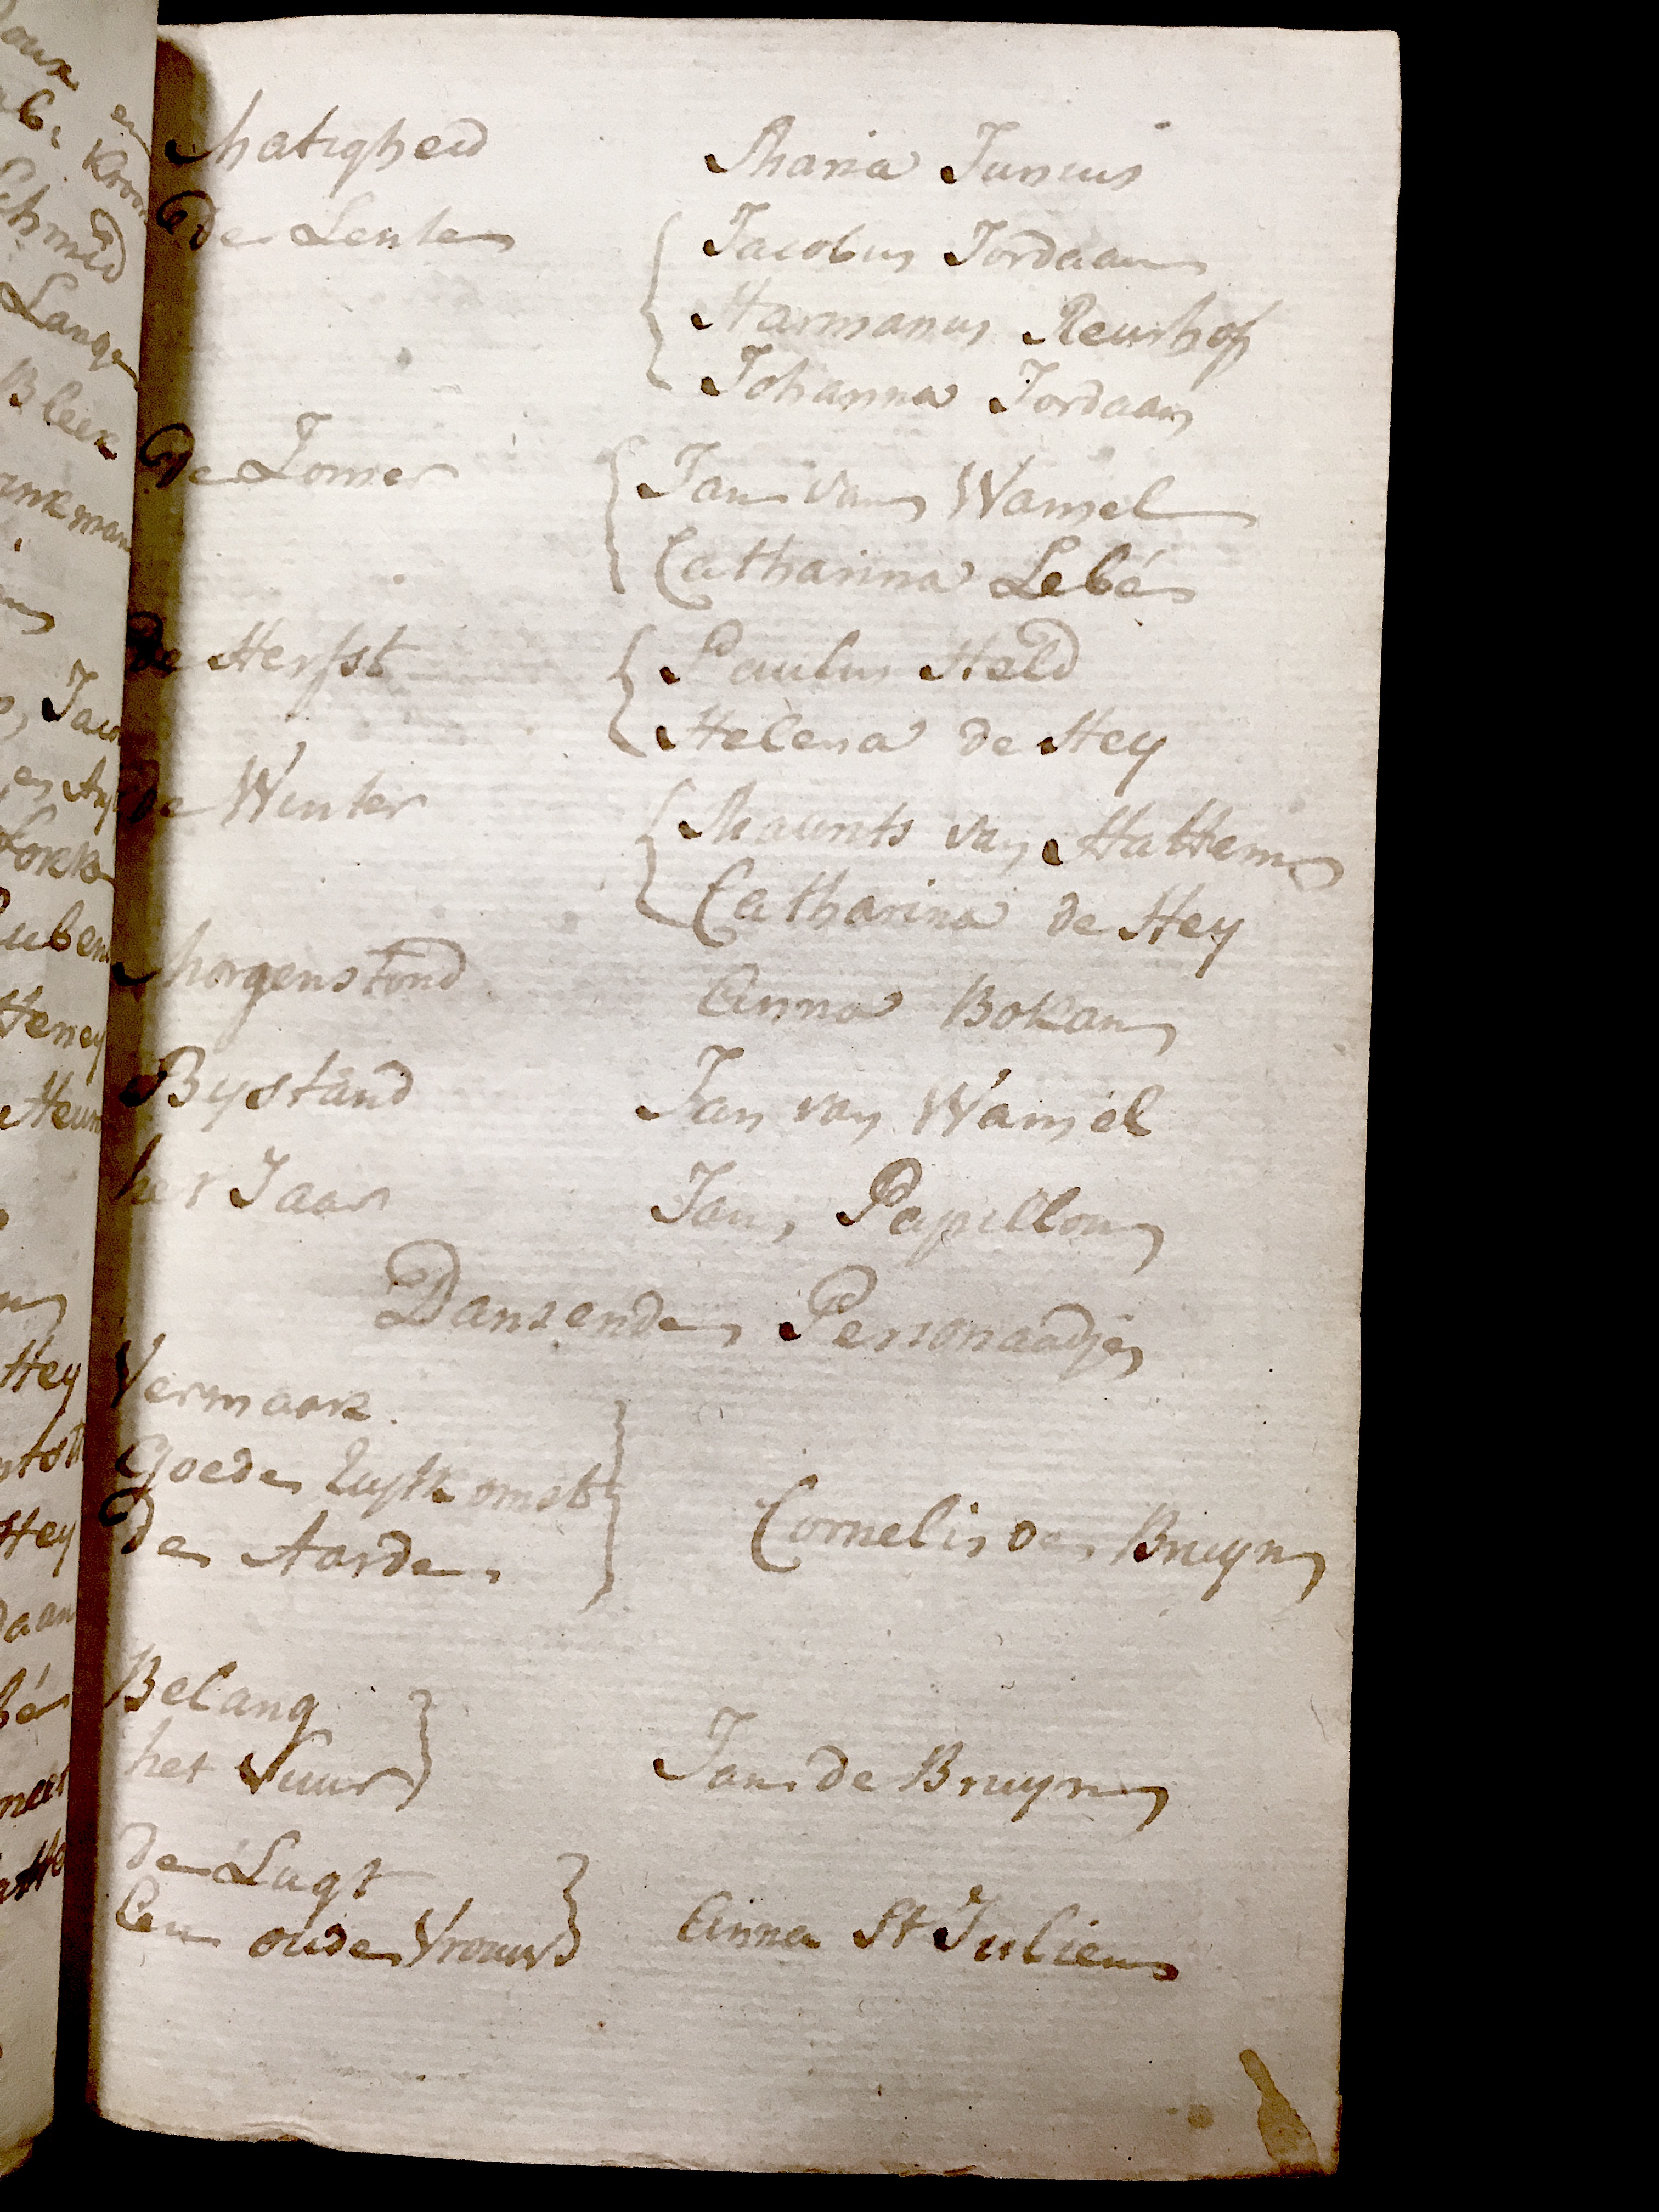 Matigheid Maria Junius
de Lente Jacobus Jordaan
Harmanus Reurhof
Johanna Jordaan
de Zomer Jan van Wamel
Catharina Lebé
de Herfst Paulus Held
Helena de Hey
de Winter Maurits van Hattem
Catharina de Hey
Morgenstond Anna Bokan
Bystand Jan van Wamel
het Jaar Jan, Papillon
Dansende Personaadje
Vermaak.
Goede Uytkomst Cornelis de Bruyn
de Aarde.
Belang
het Vuur Jan de Bruyn
de Lugt
Een oude Vrouw Anna St Julien